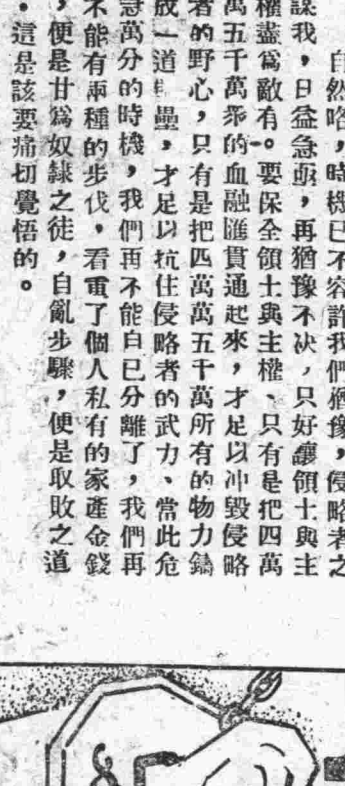 自然咯，時機已不容許我們猶豫，侵略者之
謀我，日益急亟，再猶豫不决，只好讓領土與主
權盡爲敵有。要保全領土與主權、只有是把四萬
萬五千萬衆的血融匯貫通起來，才足以冲毀侵略
者的野心，只有是把四萬萬五千萬所有的物力鑄
成一道壘，才足以抗住侵略者的武力、當此危
急萬分的時機，我們再不能自已分離了，我們再
不能有兩種的步伐，看重了個人私有的家產金錢
，便是甘爲奴隸之徒，自亂步驟，便是取敗之道
。這是該要痛切覺悟的。